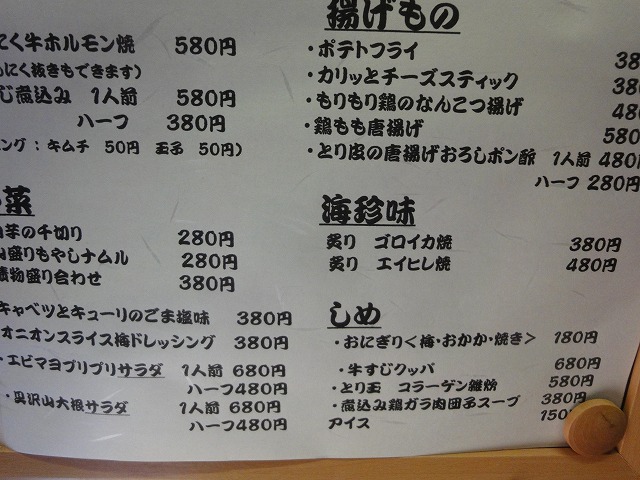 にく牛ホルモン焼 580円
にく抜きもできます)
じ煮込み 1人前 580円
ハーフ 380円
ング:キムチ 50円 玉子 50円)
菜
芋の千切り 280円
盛りもやしナムル 280円
漬物盛り合わせ 380円
キャベツとキューリのごま塩味 380円
オニオンスライス梅ドレッシング 380円
・エビマヨプリプリサラダ 1人前 680円
ハーフ480円
・具沢山大根サラダ 1人前 680円
ハーフ480円
揚げもの
・ポテトフライ 38
・カリッとチーズスティック 38
・もりもり鶏のなんこつ揚げ 48
・鶏もも唐揚げ 580
・とり皮の唐揚げおろしポン酢 1人前 480円
ハーフ 280円
海珍味
炙り ゴロイカ焼 380円
炙り エイヒレ焼 480円
しめ
・おにぎり<梅・おかか・焼き> 180円
・牛すじクッパ 680円
・とり玉 コラーゲン雑炊 580円
・煮込み鶏ガラ肉団子スープ 380円
アイス 150